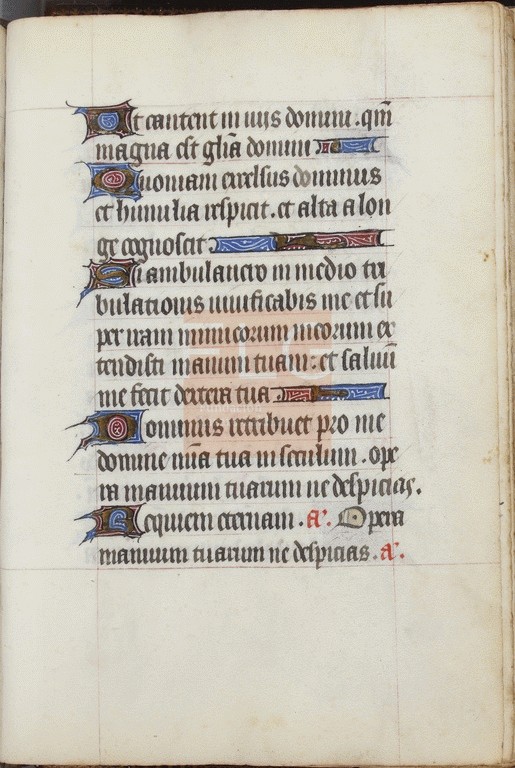 Et cantent in viis domini . qm̄
magna est glīa domini
Quoniam excelsus dominus
et humilia respicit . et alta a lon
ge cognoscit
Si ambulavero in medio tri
bulationis vivificabis me et su
per iram inimicorum meorum ex
tendisti manum tuam : et salvū
me fecit dextera tua
Dominus retribuet pro me
domine mīa tua in seculum . ope
ra manuum tuarum ne despicias .
Requiem eternam . a . Opera
manuum tuarum ne despicias . a .